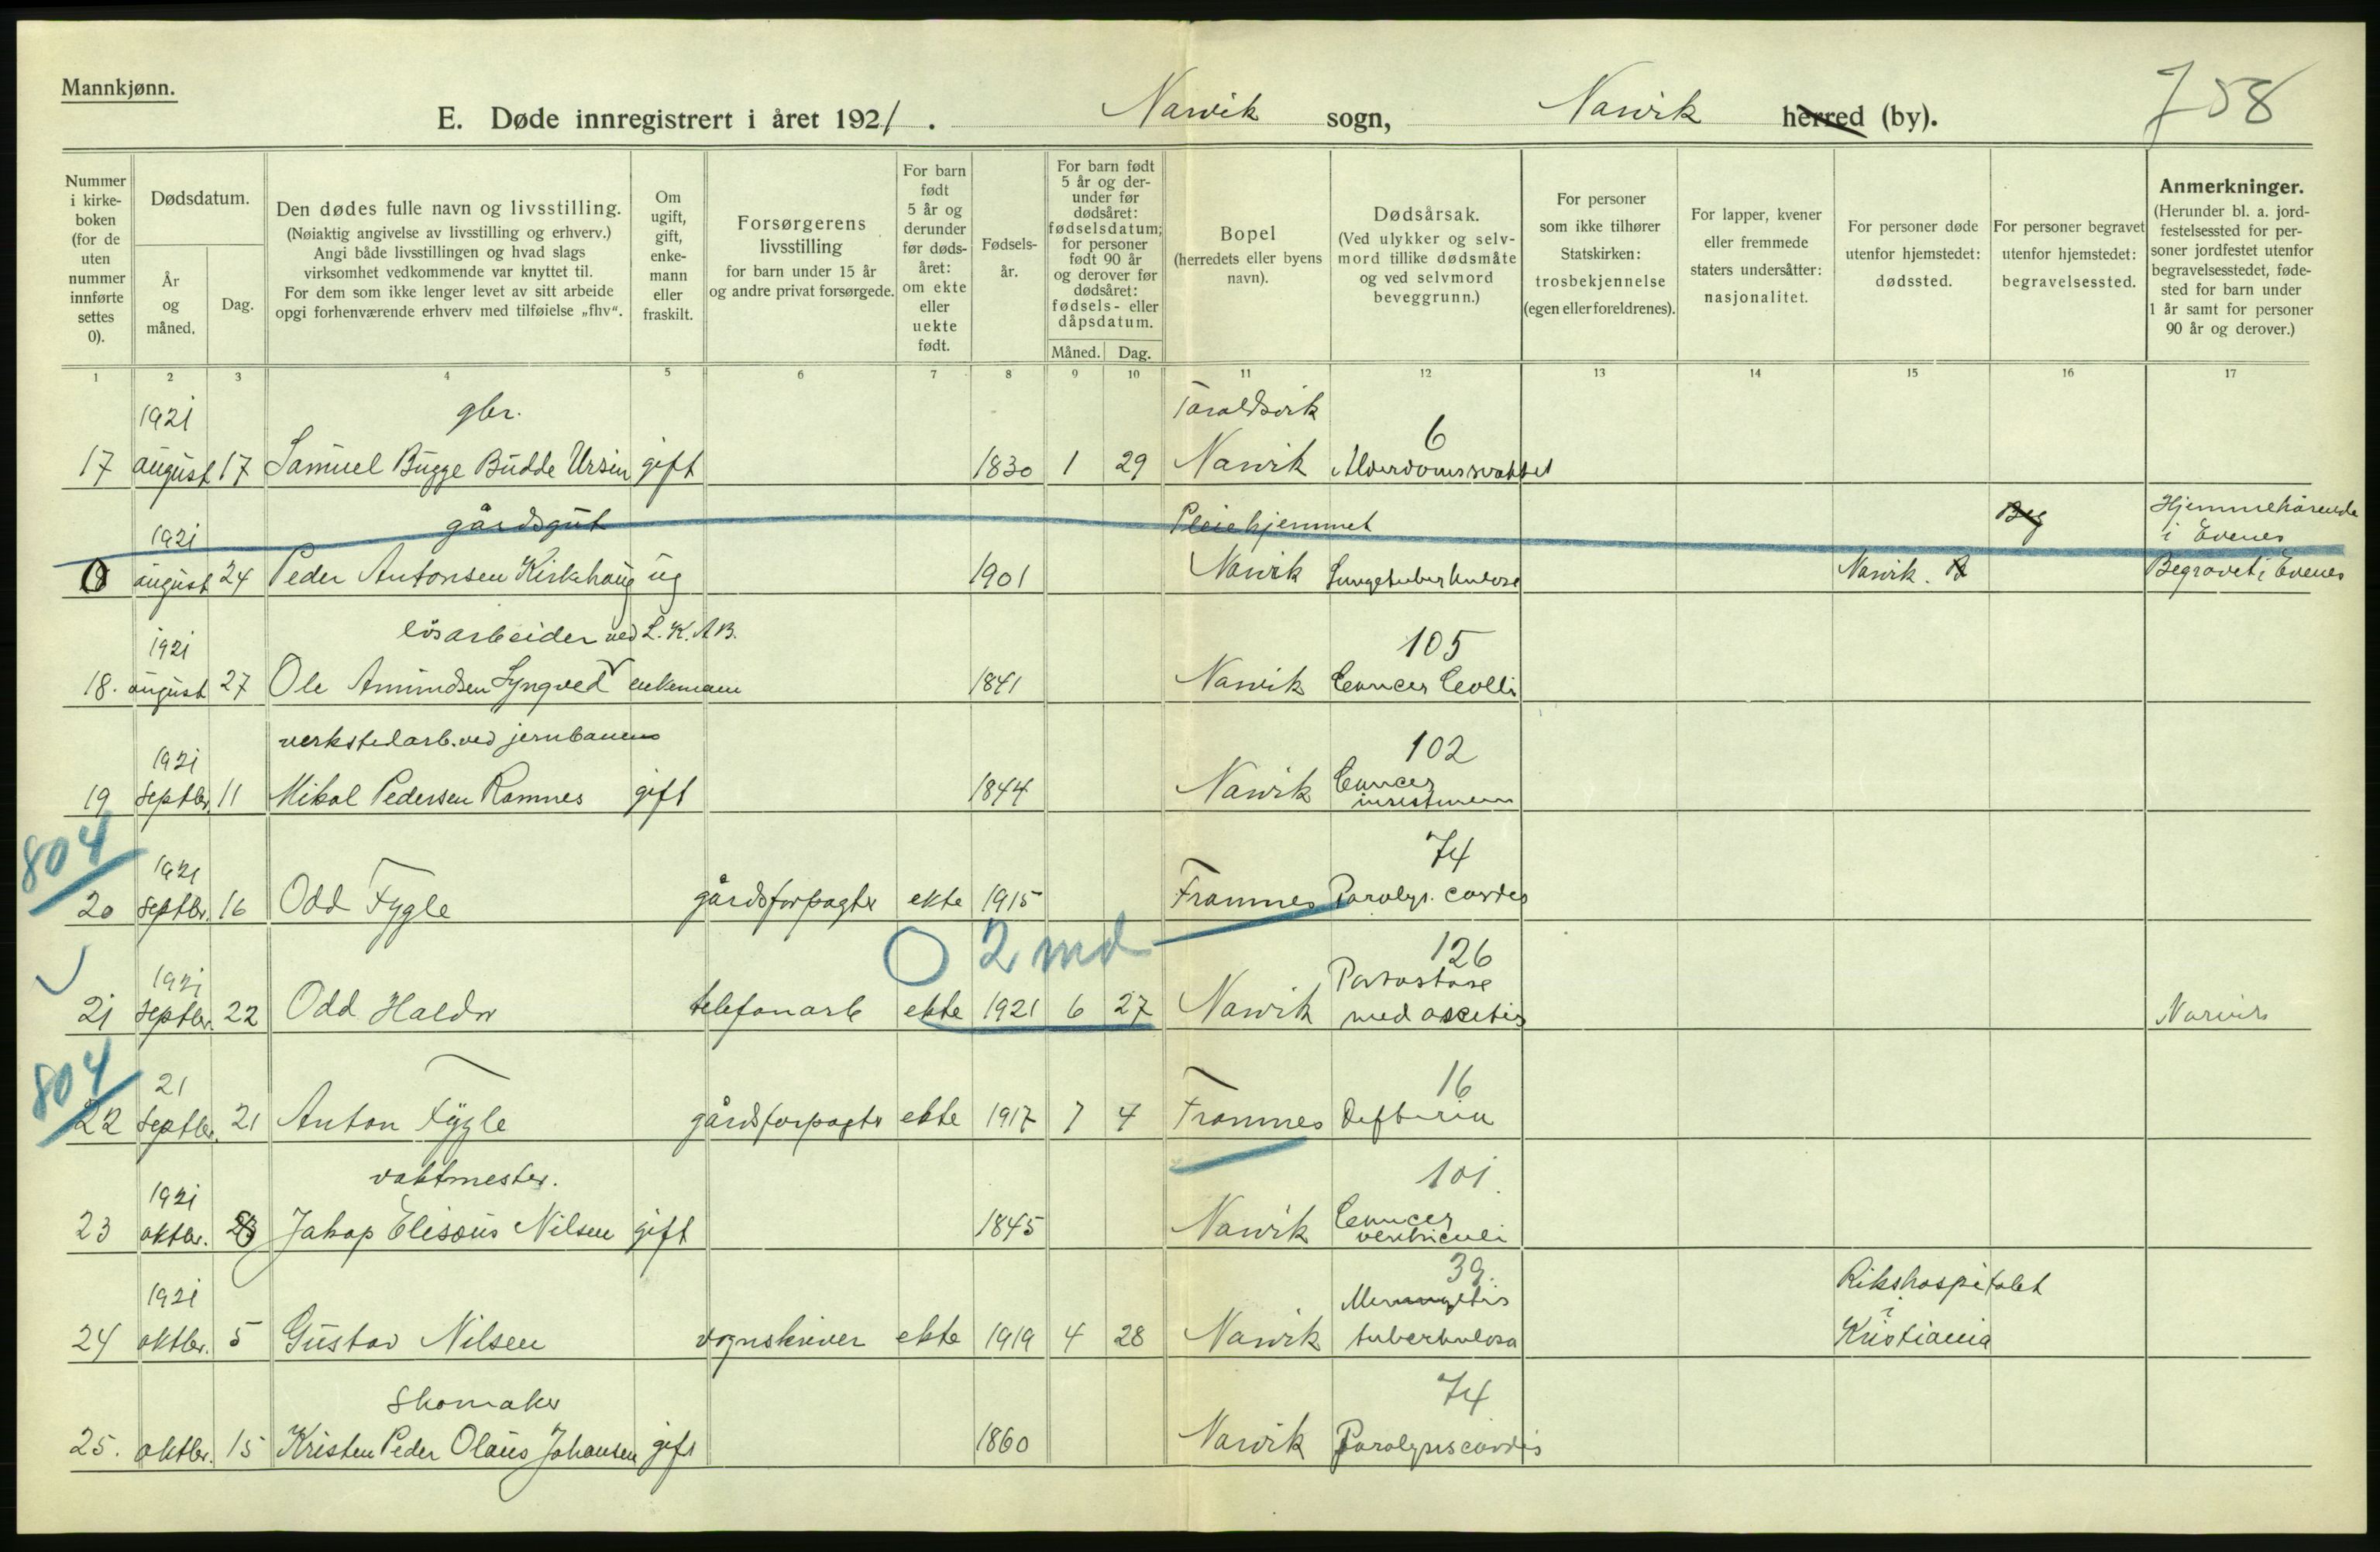 Mannkjønn.
E. Døde innregistrert i året 1921. Narvik sogn, Narvik herred (by). 758
Nummer i kirkeboken (for de uten nummer innførte settes 0).
Dødsdatum.
År og måned.
Dag.
Den dødes fulle navn og livsstilling.
(Nøiaktig angivelse av livsstilling og erhverv.)
Angi både livsstillingen og hvad slags
virksomhet vedkommende var knyttet til.
For dem som ikke lenger levet av sitt arbeide
opgi forhenværende erhverv med tilføielse „fhv“.
Om ugift, gift, enkemann eller fraskilt.
Forsørgerens livsstilling
for barn under 15 år
og andre privat forsørgede.
For barn født 5 år og derunder før dødsåret: om ekte eller uekte født.
Fødselsår.
For barn født 5 år og derunder før dødsåret: fødselsdatum; for personer født 90 år og derover før dødsåret: fødsels- eller dåpsdatum.
Måned. Dag.
Bopel
(herredets eller byens navn).
Dødsårsak.
(Ved ulykker og selvmord tillike dødsmåte og ved selvmord beveggrunn.)
For personer som ikke tilhører Statskirken: trosbekjennelse (egen eller foreldrenes).
For lapper, kvener eller fremmede staters undersåtter: nasjonalitet.
For personer døde utenfor hjemstedet: dødssted.
For personer begravet utenfor hjemstedet: begravelsessted.
Anmerkninger.
(Herunder bl. a. jordfestelsessted for personer jordfestet utenfor begravelsesstedet, fødested for barn under 1 år samt for personer 90 år og derover.)
1 2 3 4 5 6 7 8 9 10 11 12 13 14 15 16 17
1921 gbr. Taraldsvik 6
17 august 17 Samuel Bugge Budde Ursin gift 1830 1 29 Narvik Alderdomssvakhet
1921 gårdsgut Pleiehjemmet Beg Hjemmehørende i Evenes
0 august 24 Peder Antonsen Kirkhaug ug 1901 Narvik Lungetuberkulose Narvik. B Begravet i Evenes
1921 løsarbeider ved L. K. A. B. 105
18. august 27 Ole Amundsen Lyngved enkemann 1841 Narvik Cancer Colli
1921 verkstedarb. ved jernbanen 102
19 septbr. 11 Mikal Pedersen Ramnes gift 1844 Narvik Cancer
804 1921 74
20 septbr. 16 Odd Fygle gårdsforpagter ekte 1915 Framnes Paralys. cordis
2 md
1921 126
21 septbr. 22 Odd Haldor telefonarb ekte 1921 6 27 Narvik med ascites Narvik
804 21 16
22 septbr. 21 Anton Fygle gårdsforpagter ekte 1917 7 4 Framnes Difteria
1921 vaktmester. 101.
23 oktbr. Jakop Elisæus Nilsen gift 1845 Narvik Cancer ventriculi
1921 39. Rikshospitalet
24 oktbr. 5 Gustav Nilsen vognskriver ekte 1919 4 28 Narvik Meningitis tuberkulosa Kristiania
Skomaker 74
25. oktbr. 15 Kristen Peder Olaus Johansen gift 1860 Narvik Paralysis cordis